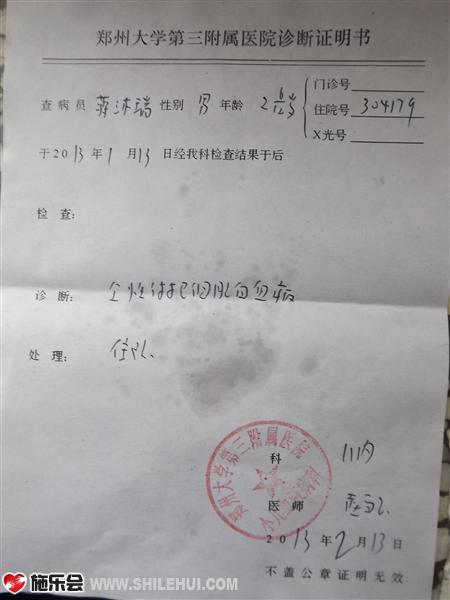 郑州大学第三附属医院诊断证明书
门诊号
查病员 蒋沐瑞 性别 男 年龄 2 6/12岁 住院号 304179
X光号
于2013年1月13日经我科检查结果于后
检 查:
诊 断: 急性淋巴细胞白血病
处 理: 住院
郑州大学第三附属医院
科 儿内
医 师
2013年2月13日
不盖公章证明无效
施乐会 WWW.SHILEHUI.COM